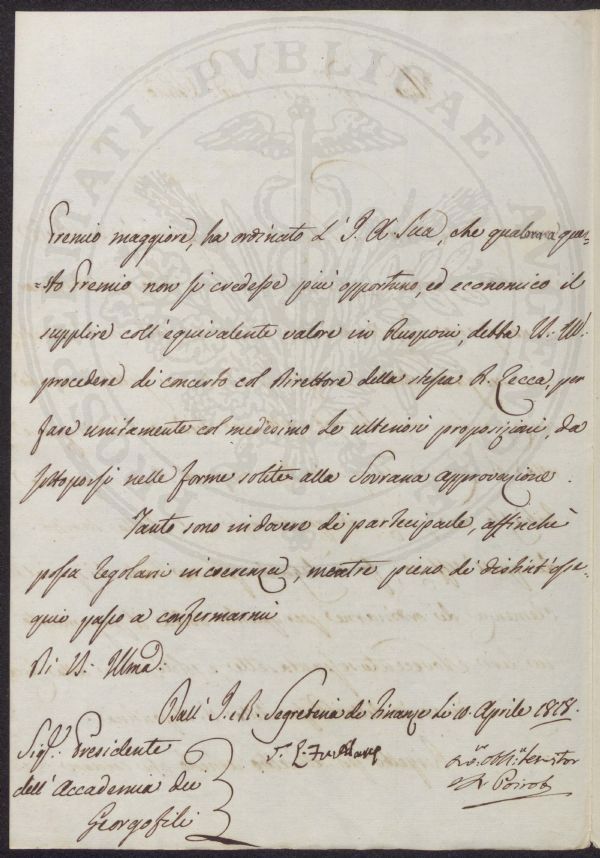 PROSPERITATI PVBLICAE AVGENDAE
Premio maggiore, ha ordinato L' I. A. Sua, che qualora a que-
=sto Premio non si credesse più opportuno, ed economico il
supplire coll'equivalente valore in Rusponi, debba V. Ill:
procedere di concerto col Direttore della stessa R. Zecca, per
fare unitamente col medesimo le ulteriori proposizioni, da
sottoporsi nelle forme solite alla Sovrana approvazione.
Tanto sono in dovere di parteciparle, affinchè
possa regolarsi in coerenza, mentre pieno di distint'osse-
quio passo a confermarmi
Di V. Illma:
Dall' I. e R. Segreteria di Finanze li 10. Aprile 1818.
Sigr. Presidente
dell'Accademia dei
Georgofili